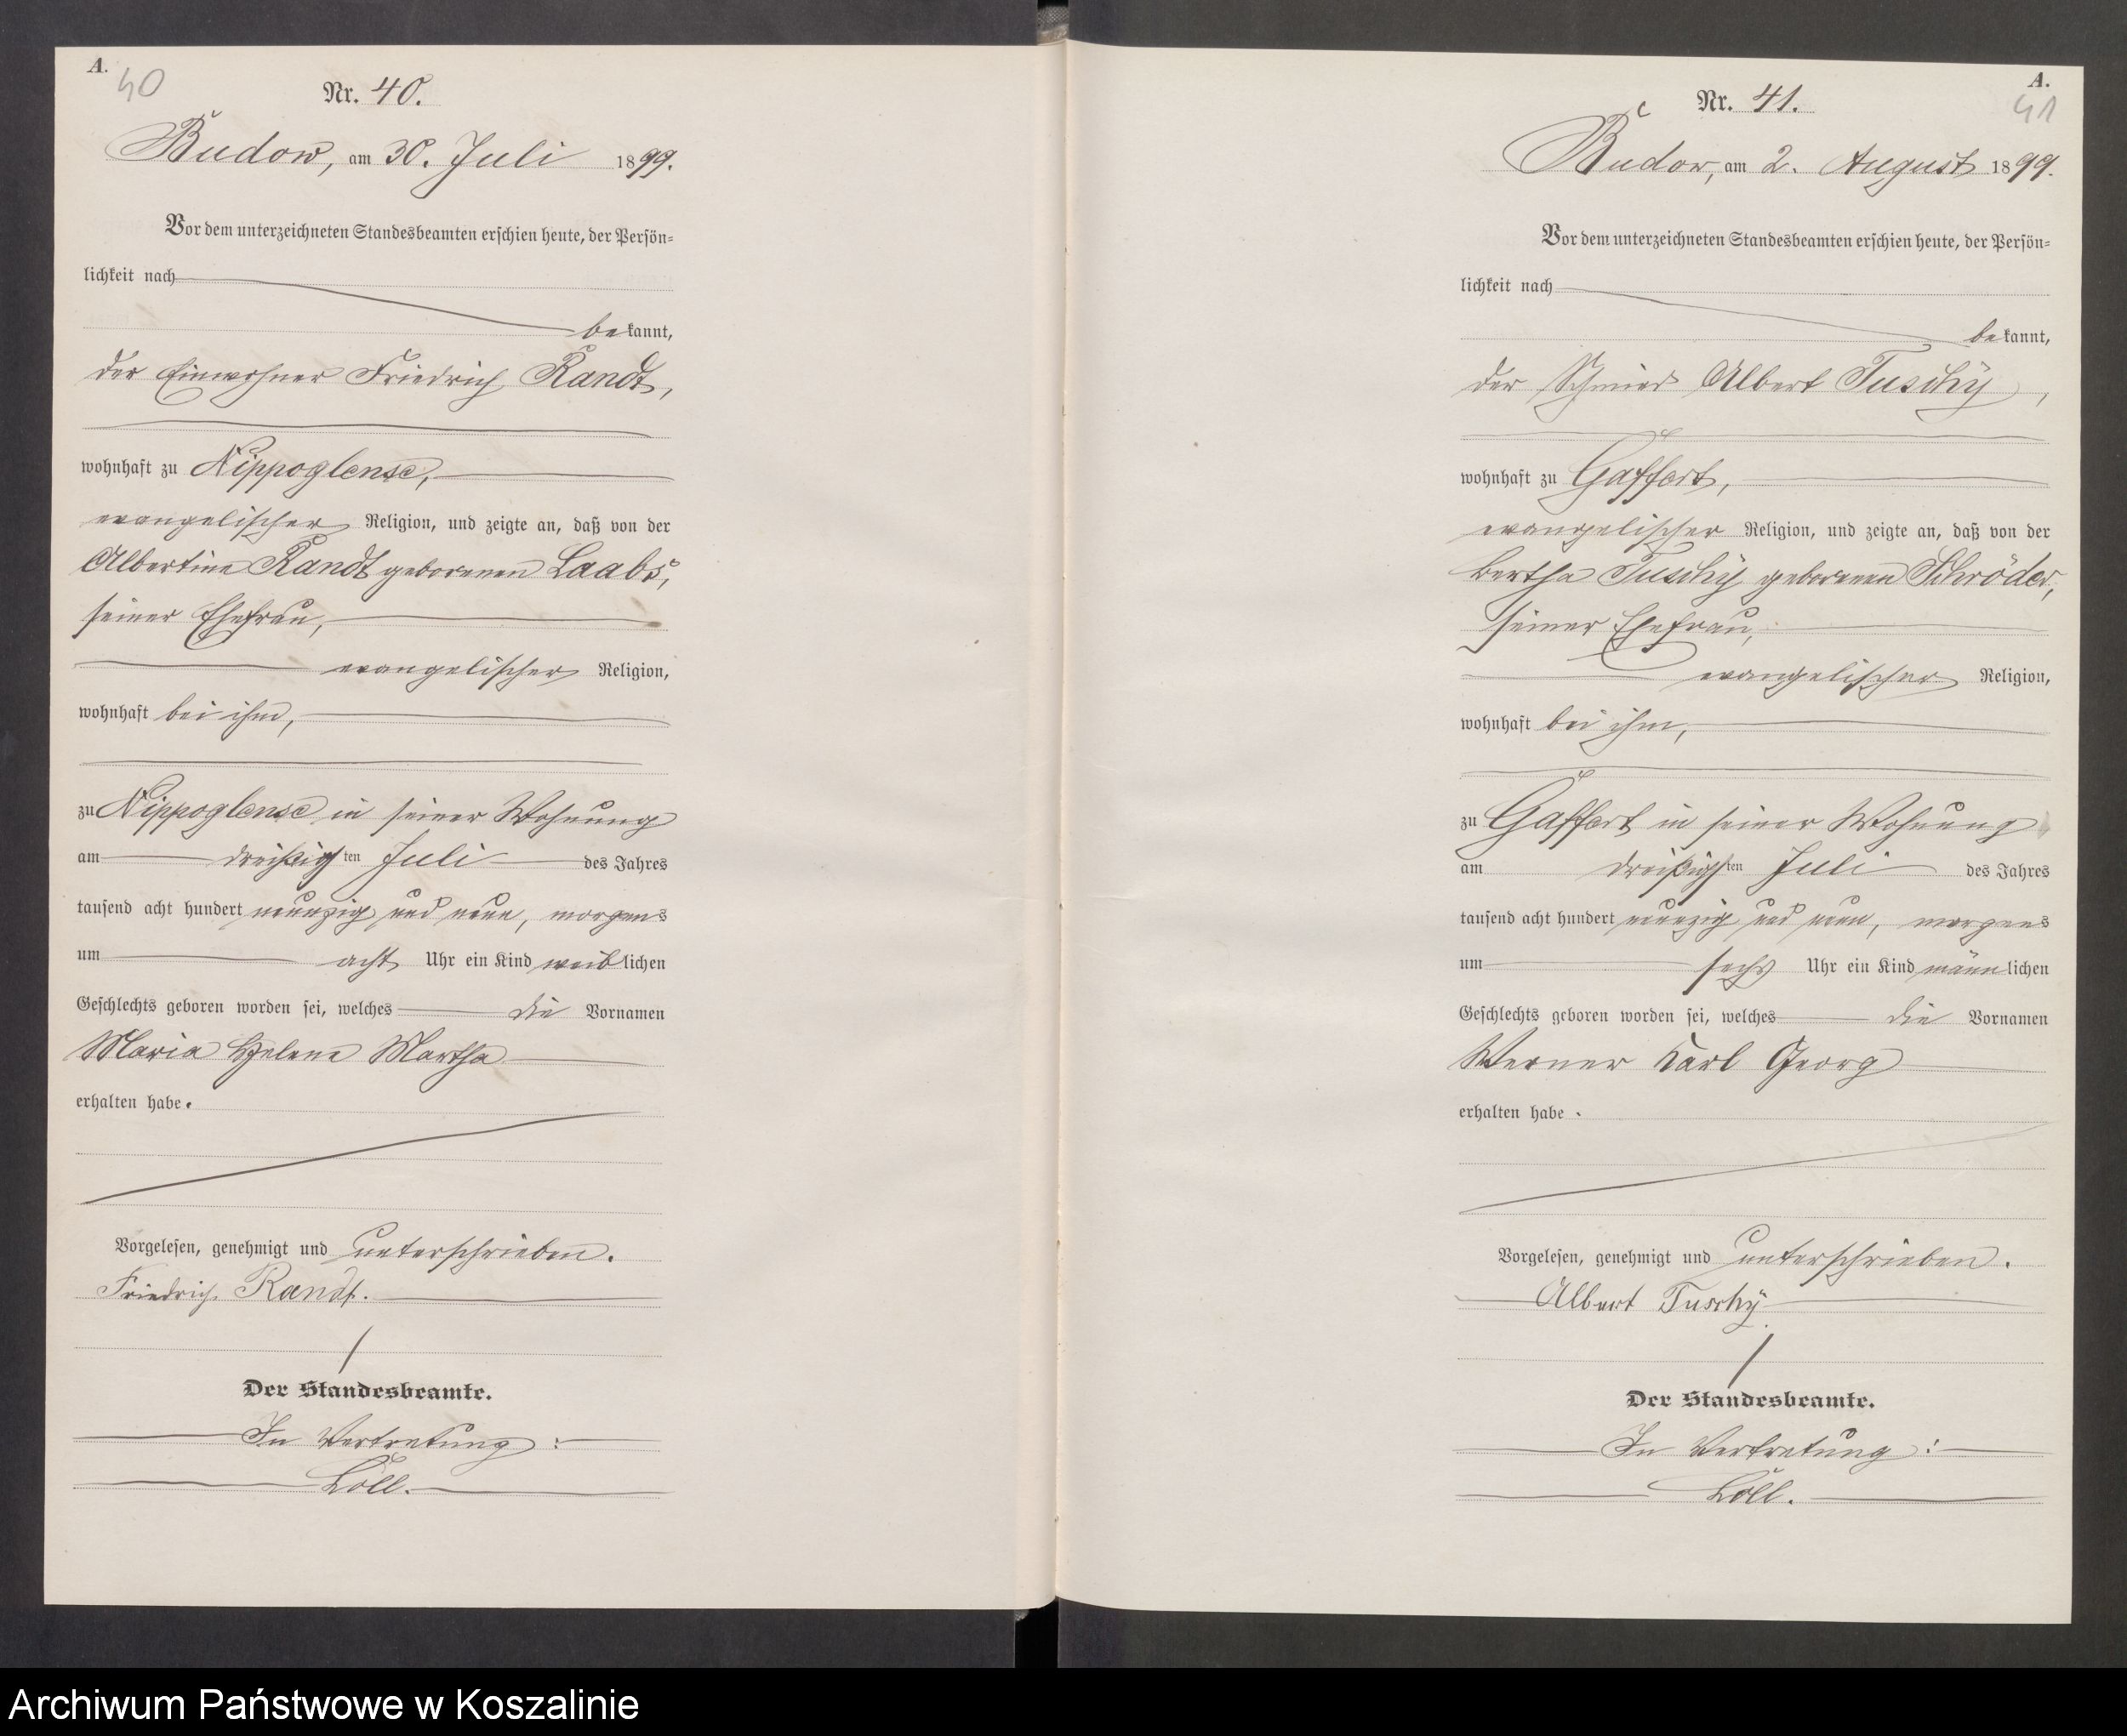 A.
40
Nr. 40.
Budow, am 30. Juli 1899.
Vor dem unterzeichneten Standesbeamten erschien heute, der Persön=
lichkeit nach
bekannt,
der Einwohner Friedrich Randt,
wohnhaft zu Nippoglense,
evangelischer Religion, und zeigte an, daß von der
Albertine Randt geborenen Laabs,
seiner Ehefrau,
evangelischer Religion,
wohnhaft bei ihm,
zu Nippoglense in seiner Wohnung
am dreißigsten Juli des Jahres
tausend acht hundert neunzig und neun, morgens
um acht Uhr ein Kind weiblichen
Geschlechts geboren worden sei, welches die Vornamen
Maria Helene Martha
erhalten habe.
Vorgelesen, genehmigt und unterschrieben.
Friedrich Randt.
Der Standesbeamte.
In Vertretung:
Löll.
A.
41
Nr. 41.
Budow, am 2. August 1899.
Vor dem unterzeichneten Standesbeamten erschien heute, der Persön=
lichkeit nach
bekannt,
der Schmied Albert Tuschÿ,
wohnhaft zu Gaffert,
evangelischer Religion, und zeigte an, daß von der
Bertha Tuschÿ geborenen Schröder,
seiner Ehefrau,
evangelischer Religion,
wohnhaft bei ihm,
zu Gaffert in seiner Wohnung
am dreißigsten Juli des Jahres
tausend acht hundert neunzig und neun, morgens
um sechs Uhr ein Kind männlichen
Geschlechts geboren worden sei, welches die Vornamen
Werner Karl Georg
erhalten habe.
Vorgelesen, genehmigt und unterschrieben.
Albert Tuschÿ
Der Standesbeamte.
In Vertretung:
Löll.
Archiwum Państwowe w Koszalinie